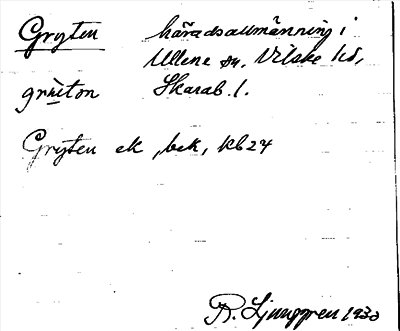 Gryten häradsallmänning i
Ullene sn, Vilske hd,
grùton Skarab. l.
Gryten ek, bek, Kb 24
R. Ljunggren 1933